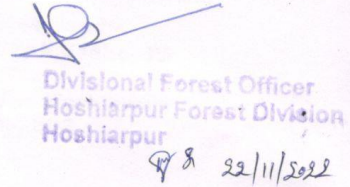 Divisional Forest Officer
Hoshiarpur Forest Division
Hoshiarpur
22/11/2022